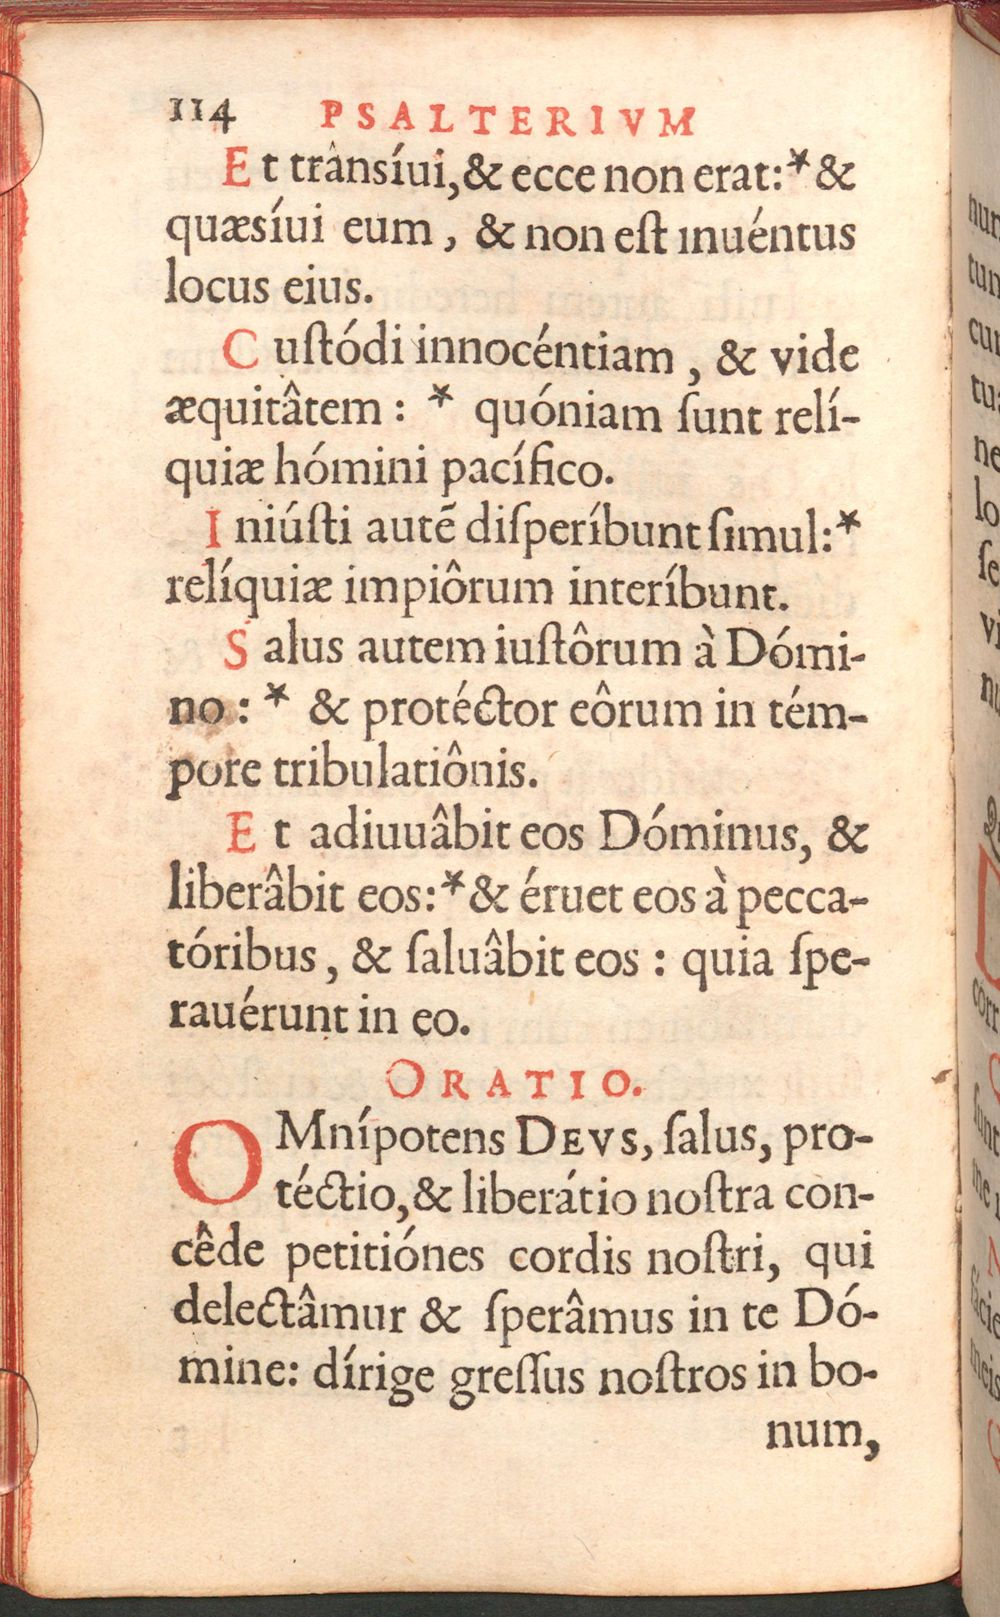 114 PSALTERIVM
Et transíui, & ecce non erat: * &
quæsíui eum, & non eſt inuéntus
locus eius.
Cuſtódi innocéntiam, & vide
æquitâtem: * quóniam ſunt relí-
quiæ hómini pacífico.
Iniúſti autē diſperíbunt ſimul: *
relíquiæ impiôrum interíbunt.
Salus autem iuſtôrum à Dómi-
no: * & protéctor eôrum in tém-
pore tribulatiônis.
Et adiuuâbit eos Dóminus, &
liberâbit eos: * & éruet eos à pecca-
tóribus, & ſaluâbit eos: quia ſpe-
rauérunt in eo.
ORATIO.
OMnípotens DEVS, ſalus, pro-
téctio, & liberátio noſtra con-
cêde petitiónes cordis noſtri, qui
delectâmur & ſperâmus in te Dó-
mine: dírige greſſus noſtros in bo-
num,